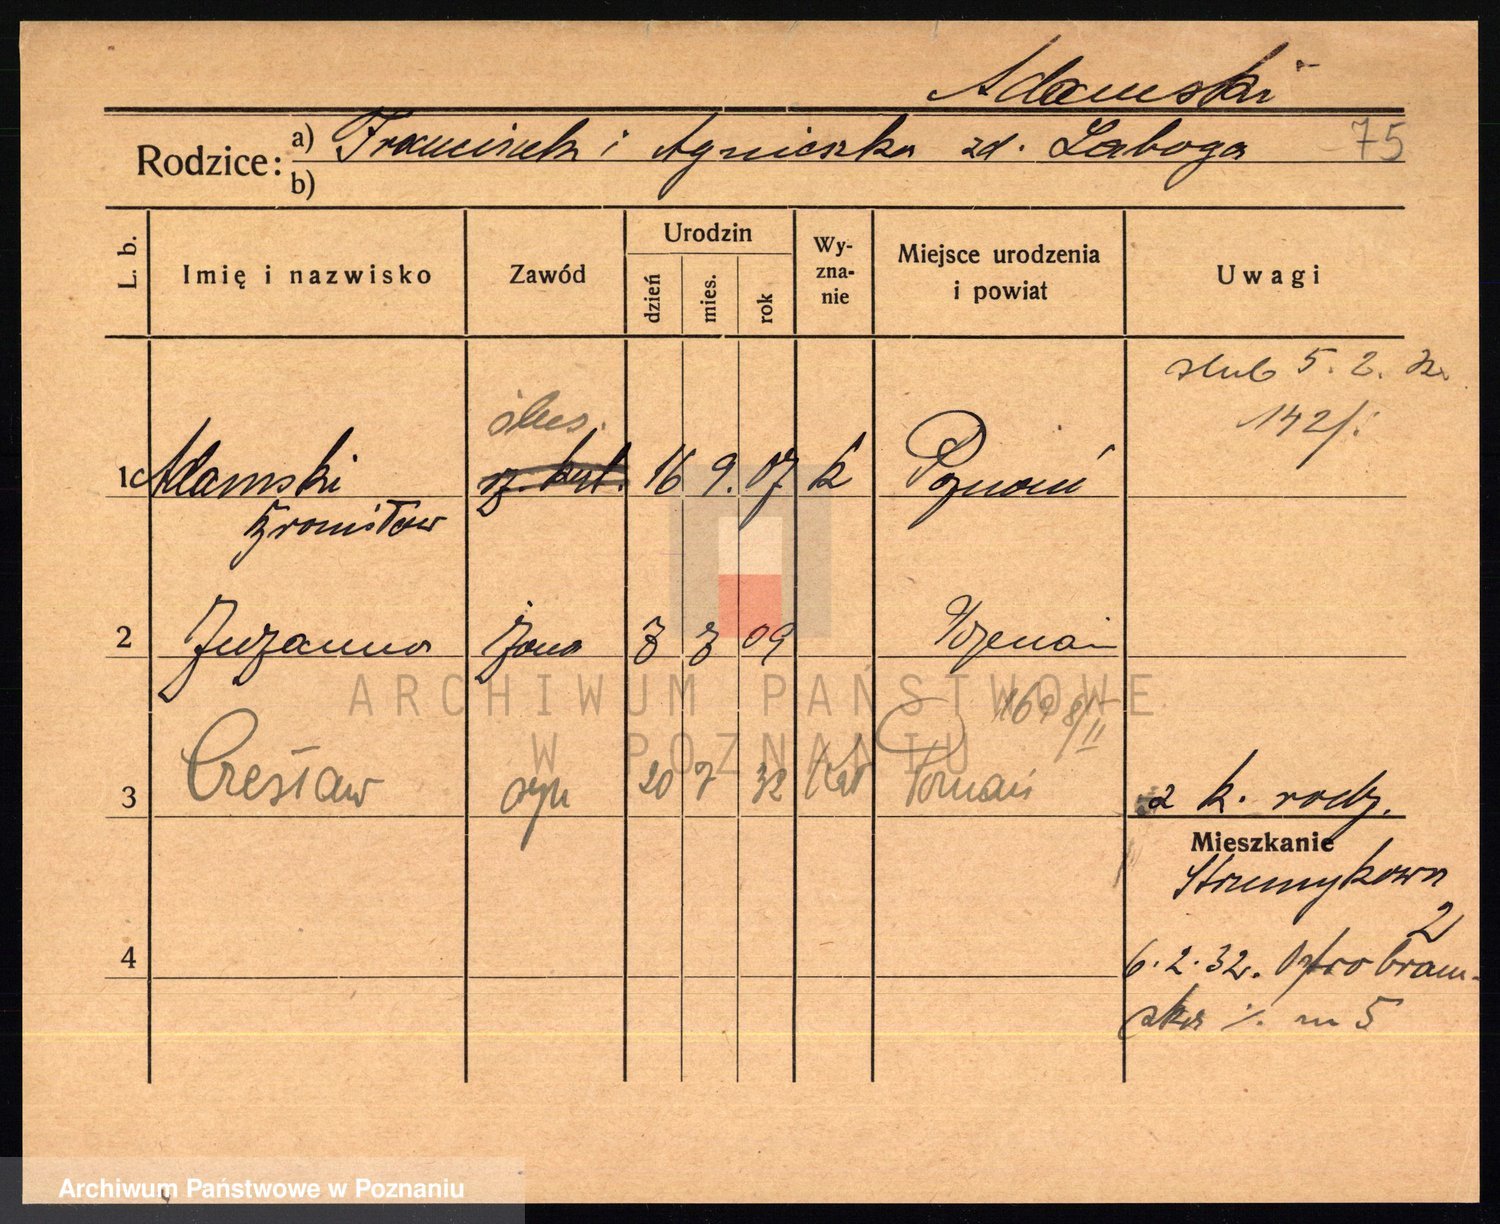 Adamski
Rodzice: a) Franciszek i Agnieszka zd. Łaboga 75
b)
L. b. Imię i nazwisko Zawód Urodzin dzień mies. rok Wyzna-nie Miejsce urodzenia i powiat Uwagi
ślub 5. 2. 32.
142/
ślus.
1 Adamski 16 9. 07 k Poznań
Bronisław
2 Zuzanna żona 3 3 09 Poznań
ARCHIWUM PAŃSTWOWE
W POZNANIU
169 8/II
3 Czesław syn 20 7 32 kat Poznań
z k. rodz.
Mieszkanie
Strumykowa
2
4
6. 2. 32. Ostrobram-
ska m 5
Archiwum Państwowe w Poznaniu